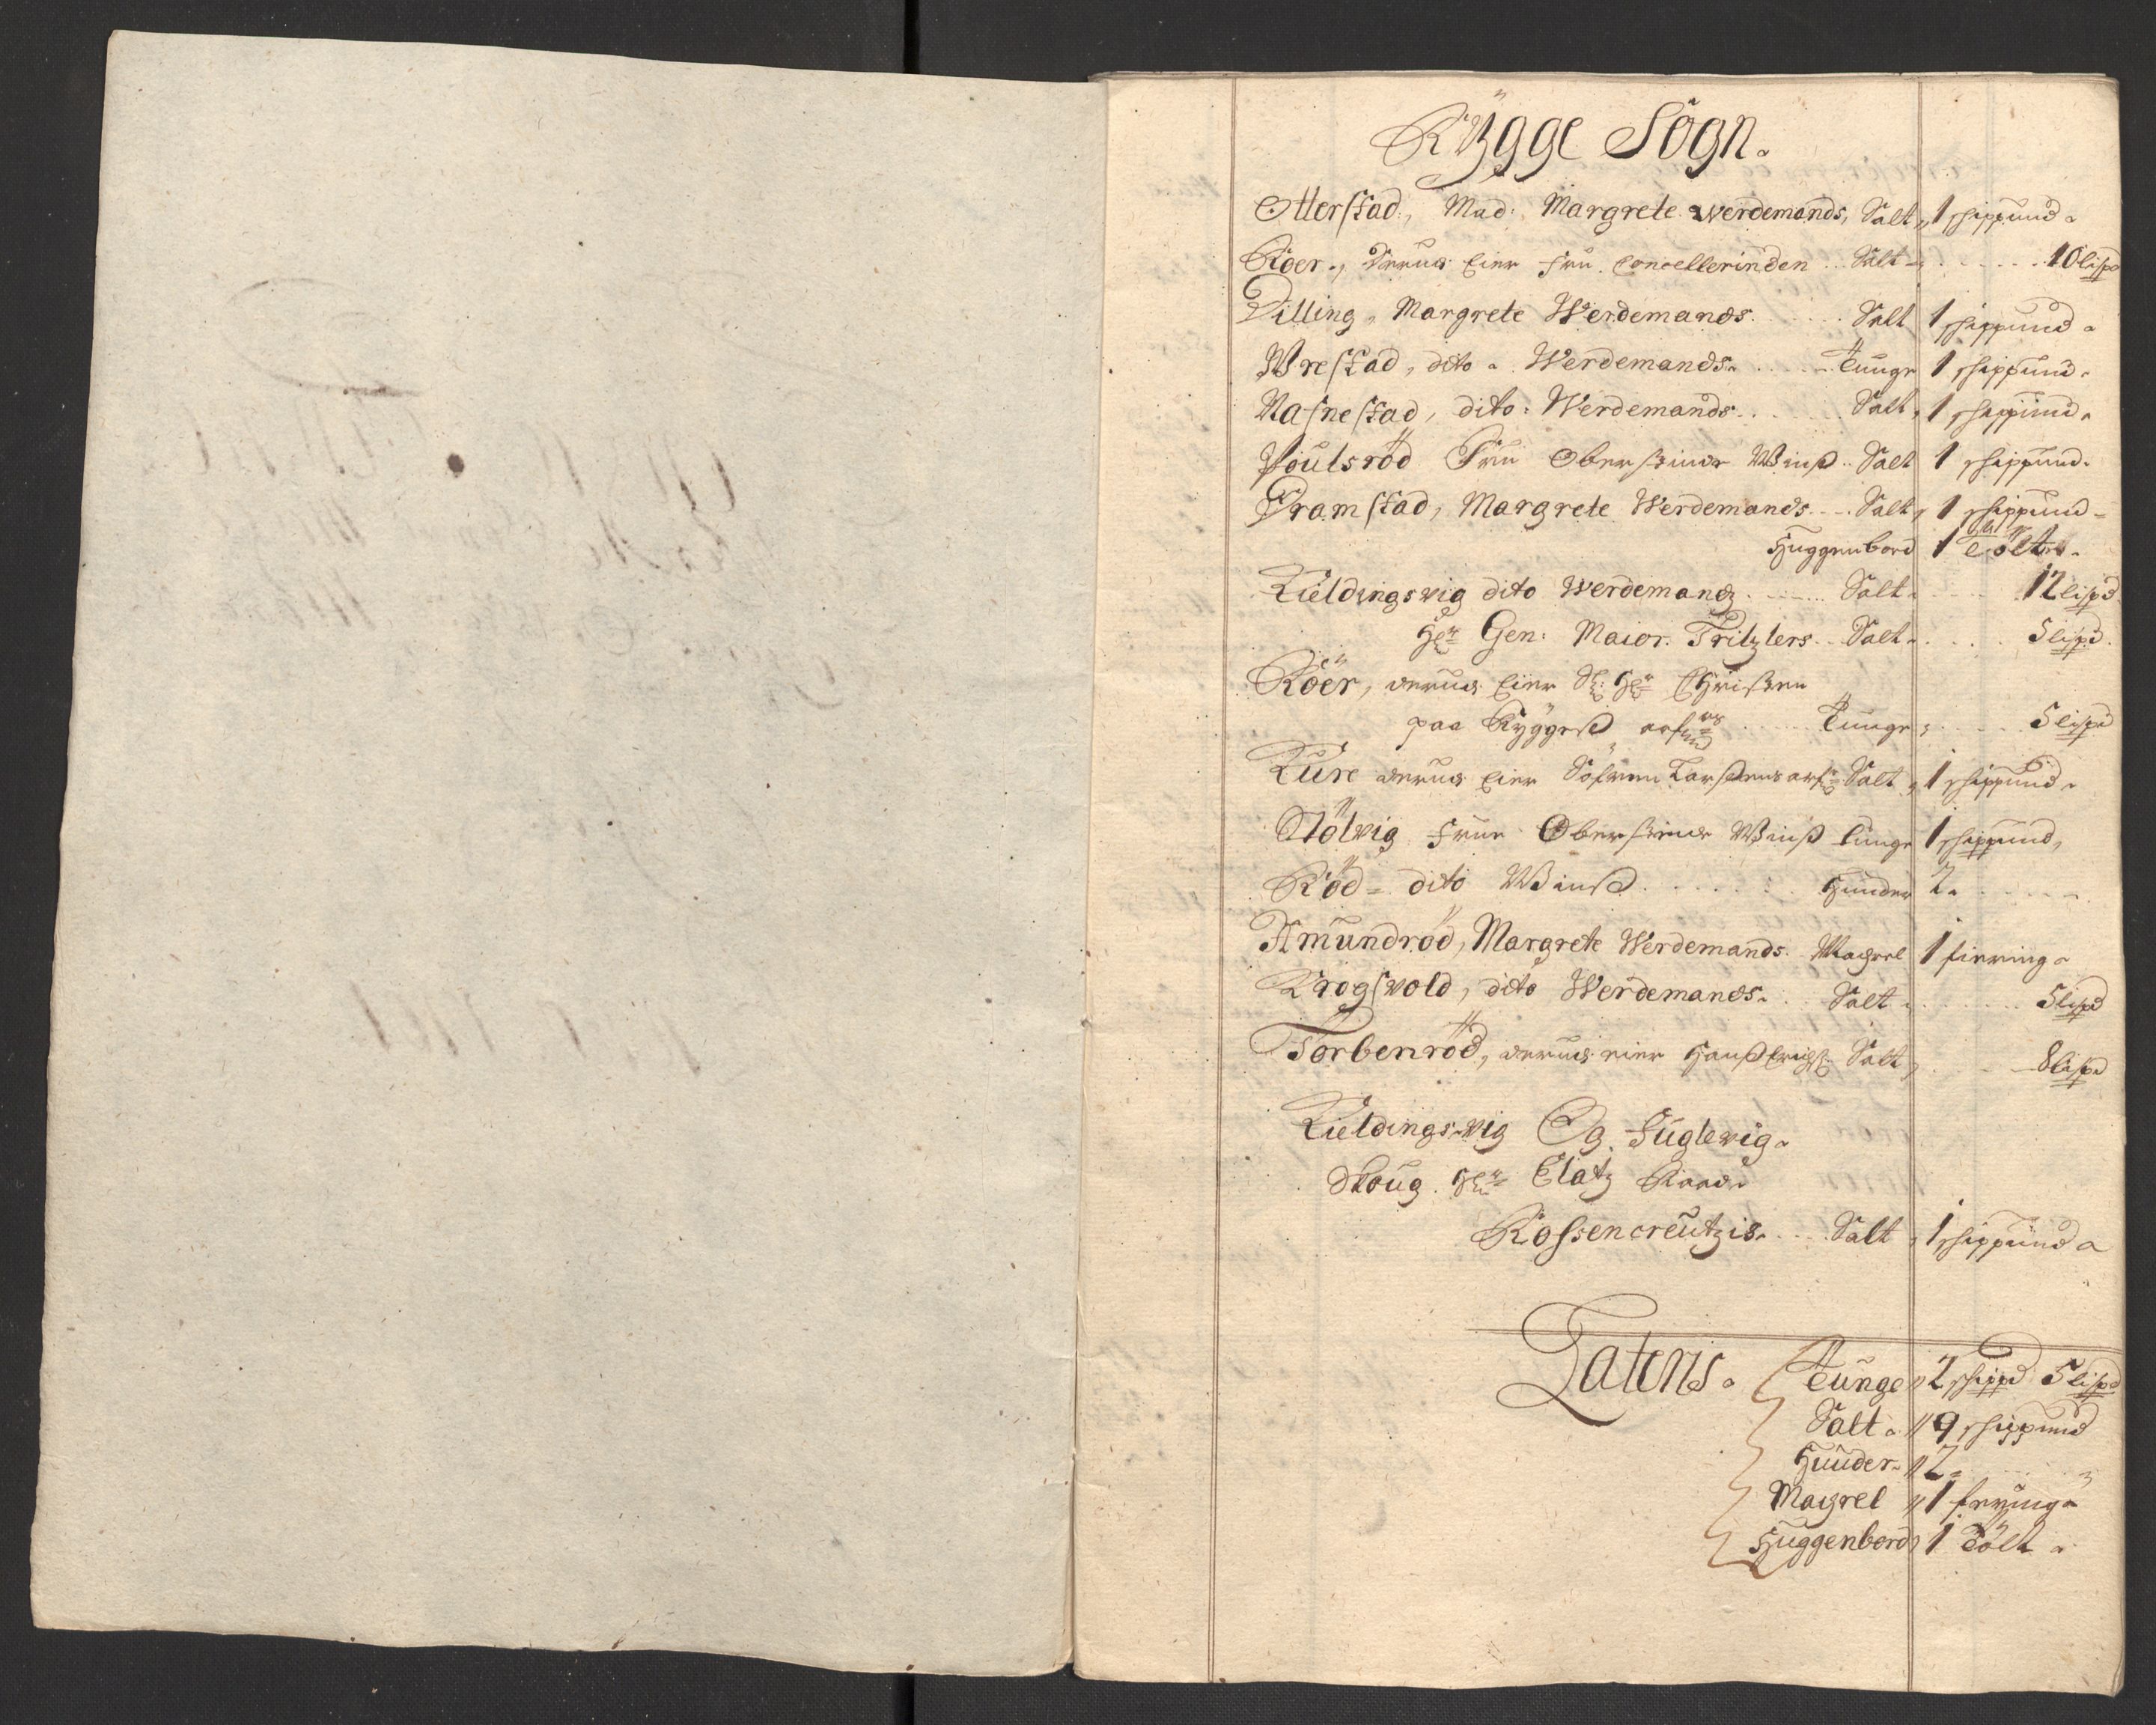 Rygge Sogn.
Otterstad, Mad: Margrete Werdemands, Salt, 1 skippund.
Roer., derus Eier Fru Cancellerinden .. Salt - 10 lispd
Dilling, Margrete Werdemands. Salt 1 skippund.
Wrestad, dito. Werdemands. Tunge 1 skippund.
Nasnestad, dito: Werdemands. Salt, 1 skippund.
Poulsröd Fru Oberstinde Winß .. Salt 1 skippund.
Dramstad, Margrete Werdemands ... Salt, 1 skippund
Huggenbord 1 Tölt.
Kieldingsvig dito Werdemands ... Salt. 12 lispd.
Hr: Gen: Maior. Tritzlers .. Salt. 5 lispd.
Röer, derus Eier Sl: Hr: Christen
paa Rygges Tunge, 5 lispd
Kure derus Eier Söfren Larsens arf: Salt, 1 skippund.
Stölvig Frue Oberstinde Winß Tunge 1 skippund,
Röd - dito Winß. Huuder 2.
Amundröd, Margrete Werdemands. Machrel 1 fiering.
Krogsvold, dito Werdemands. Salt. 5 lispd
Torbenröd, derus eier Hanß Salt, 8 lispd
Kieldingsvig Og Fuglevig.
Skoug. Hr: Etatz Raad
Rossencreutzis. Salt, 1 skippund
Latens. Tunge 2 skippd 5 lispd
Salt. 9 skippund
Huuder. 2
Machrel 1 fering
Huggenbord 1 Tölt.